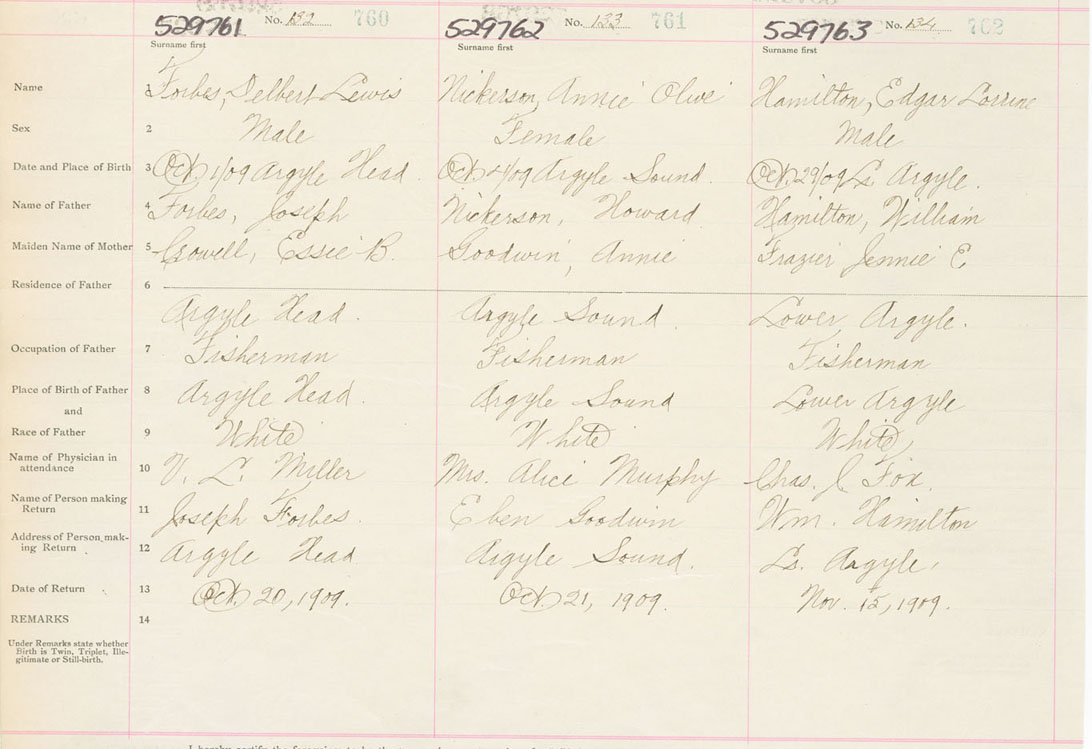 529761 No. 132 760 529762 No. 133 761 529763 No. 134 762
Surname first Surname first Surname first
Name 1 Forbes, Delbert Lewis Nickerson, Annie Olive Hamilton, Edgar Lorrine
Sex 2 Male Female Male
Date and Place of Birth 3 Oct. 1/09 Argyle Head. Oct. 4/09 Argyle Sound. Oct. 29/09 Lr. Argyle.
Name of Father 4 Forbes, Joseph Nickerson, Howard Hamilton, William
Maiden Name of Mother 5 Crowell, Essie B. Goodwin, Annie Frazier Jennie E.
Residence of Father 6
Argyle Head. Argyle Sound. Lower Argyle.
Occupation of Father 7 Fisherman Fisherman Fisherman
Place of Birth of Father 8 Argyle Head. Argyle Sound Lower Argyle
and
Race of Father 9 White White White
Name of Physician in
attendance 10 V. L. Miller Mrs. Alice Murphy Chas. J Fox.
Name of Person making
Return 11 Joseph Forbes. Eben Goodwin Wm. Hamilton
Address of Person mak-
ing Return 12 Argyle Head Argyle Sound. Lr. Argyle,
Date of Return 13 Oct. 20, 1909. Oct. 21, 1909. Nov. 15, 1909.
REMARKS 14
Under Remarks state whether
Birth is Twin, Triplet, Ille-
gitimate or Still-birth.